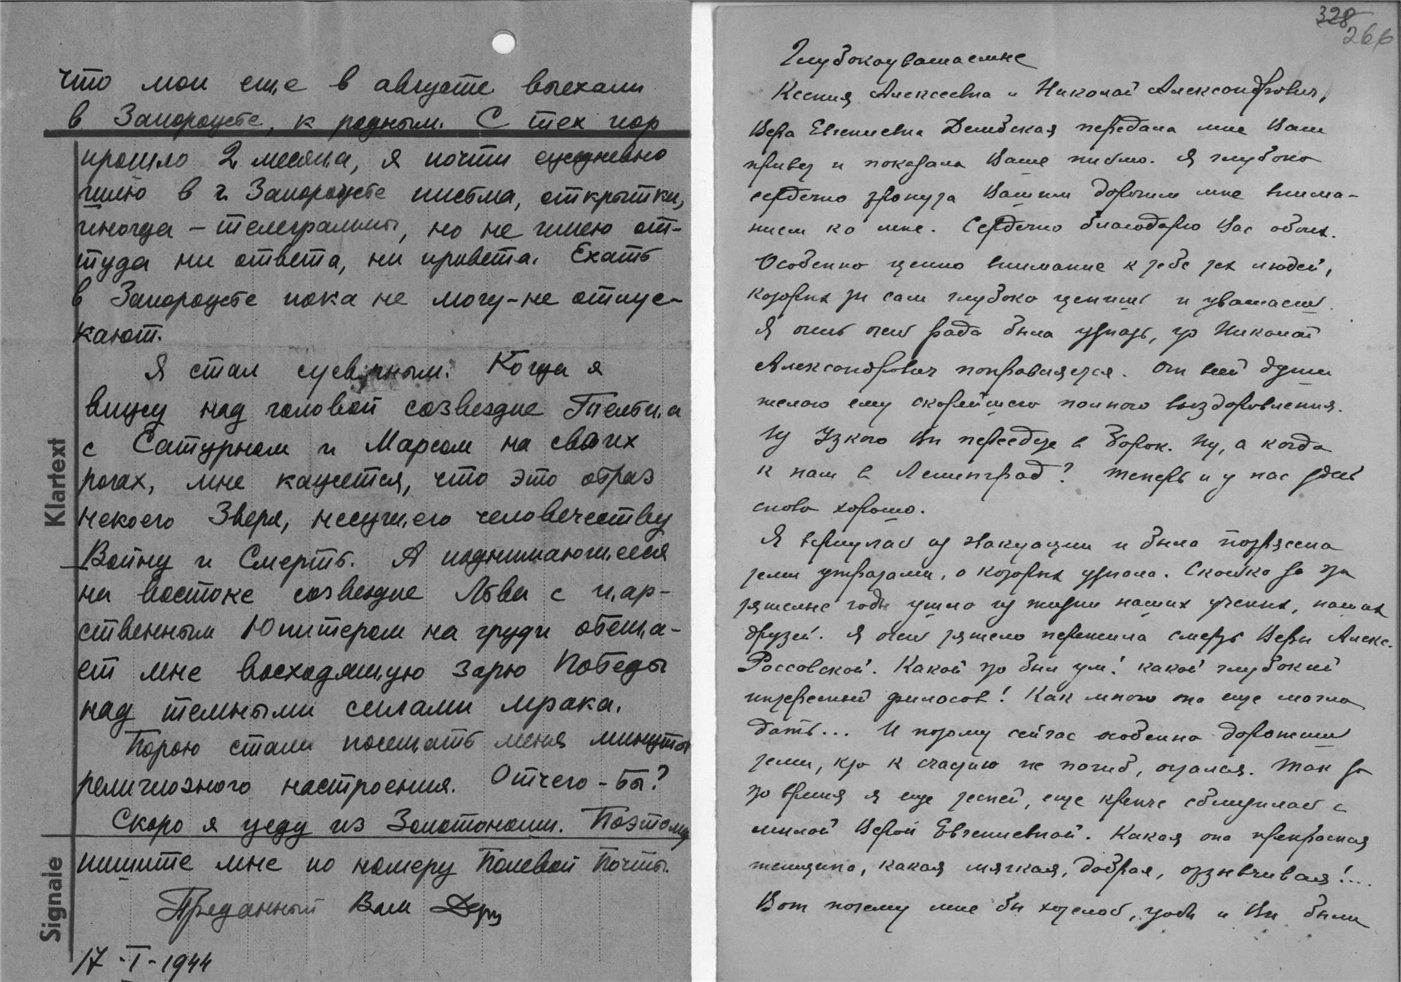 что мои еще в августе выехали
в Запорожье, к родным. С тех пор
прошло 2 месяца, я почти ежедневно
шлю в г. Запорожье письма, открытки,
иногда – телеграммы, но не имею от-
туда ни ответа, ни привета. Ехать
в Запорожье пока не могу – не отпус-
кают.
Я стал суеверным. Когда я
вижу над головой созвездие Тельца
с Сатурном и Марсом на своих
рогах, мне кажется, что это образ
некоего Зверя, несущего человечеству
Войну и Смерть. А поднимающееся
на востоке созвездие Льва с цар-
ственным Юпитером на груди обеща-
ет мне восходящую зарю Победы
над темными силами мрака.
Порою стали посещать меня минуты
религиозного настроения. Отчего-бы?
Скоро я уеду из Золотоноши. Поэтому
пишите мне по номеру Полевой Почты.
Преданный Вам
17-I-1944
Klartext
Signale
328
266
Глубокоуважаемые
Ксения Алексеевна и Николай Александрович,
Вера Евгениевна передала мне Ваш
привет и показала Ваше письмо. Я глубоко
сердечно тронута Вашим дорогим мне внима-
нием ко мне. Сердечно благодарю Вас обоих.
Особенно ценно внимание к себе тех людей,
которых ты сам глубоко ценишь и уважаешь.
Я очень очень рада была узнать, что Николай
Александрович поправляется. От всей души
желаю ему скорейшего полного выздоровления.
Из Узкого Вы переедете в Борок. Ну, а когда
к нам в Ленинград? Теперь и у нас здесь
снова хорошо.
Я вернулась из эвакуации и была потрясена
теми утратами, о которых узнала. Сколько за эти
тяжелые годы ушло из жизни наших ученых, наших
друзей. Я очень тяжело пережила смерть Веры Алекс.
Россовской. Какой это был ум! какой глубокий
интересный философ! Как много она еще могла
дать... И потому сейчас особенно дорожишь
теми, кто к счастью не погиб, остался. Так за
это время я еще тесней, еще крепче сблизилась с
милой Верой Евгениевной. Какая она прекрасная
женщина, какая мягкая, добрая, отзывчивая!...
Вот почему мне бы хотелось, чтобы и Вы были